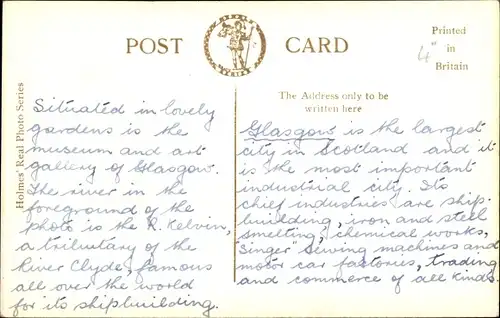 POST CARD
Printed
in
Britain
4"
Holmes' Real Photo Series
The Address only to be
written here
Situated in lovely
gardens is the
museum and art
gallery of Glasgow.
The river in the
foreground of the
photo is the R. Kelvin,
a tributary of the
River Clyde, famous
all over the world
for its shipbuilding.
Glasgow is the largest
city in Scotland and it
is the most important
industrial city. Its
chief industries are ship-
building, iron and steel
smelting, chemical works,
"Singer" sewing machines and
motor car factories, trading
and commerce of all kinds.